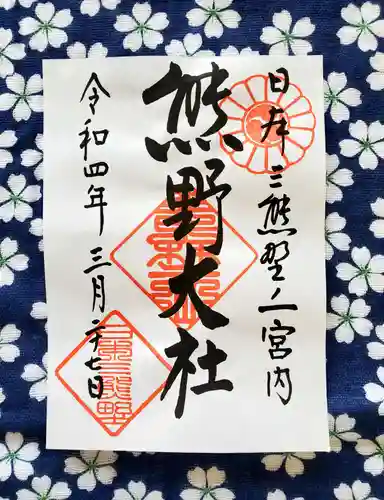 日本三熊野ノ一宮内
熊野大社
令和四年 三月二十七日